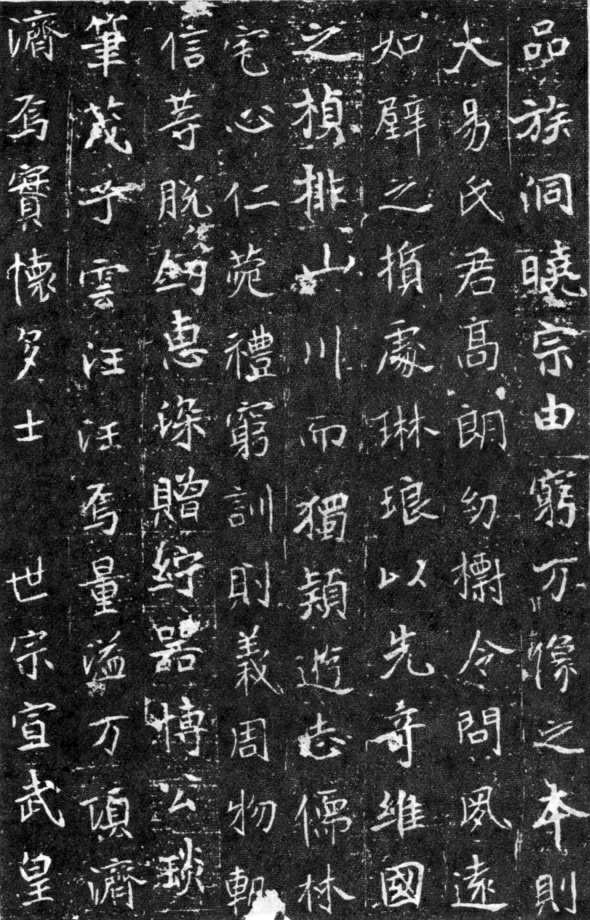 品族洞曉宗由窮万像之本則
大易氏君高朗幼摽令問夙遠
如璧之損處琳琅以先奇維國
之楨排山川而獨穎遊志儒林
宅心仁菀禮窮訓則義周物軌
信等脫劒惠深贈紵器博公琰
筆茂子雲汪汪焉量溢万頃濟
濟焉實懷多士 世宗宣武皇